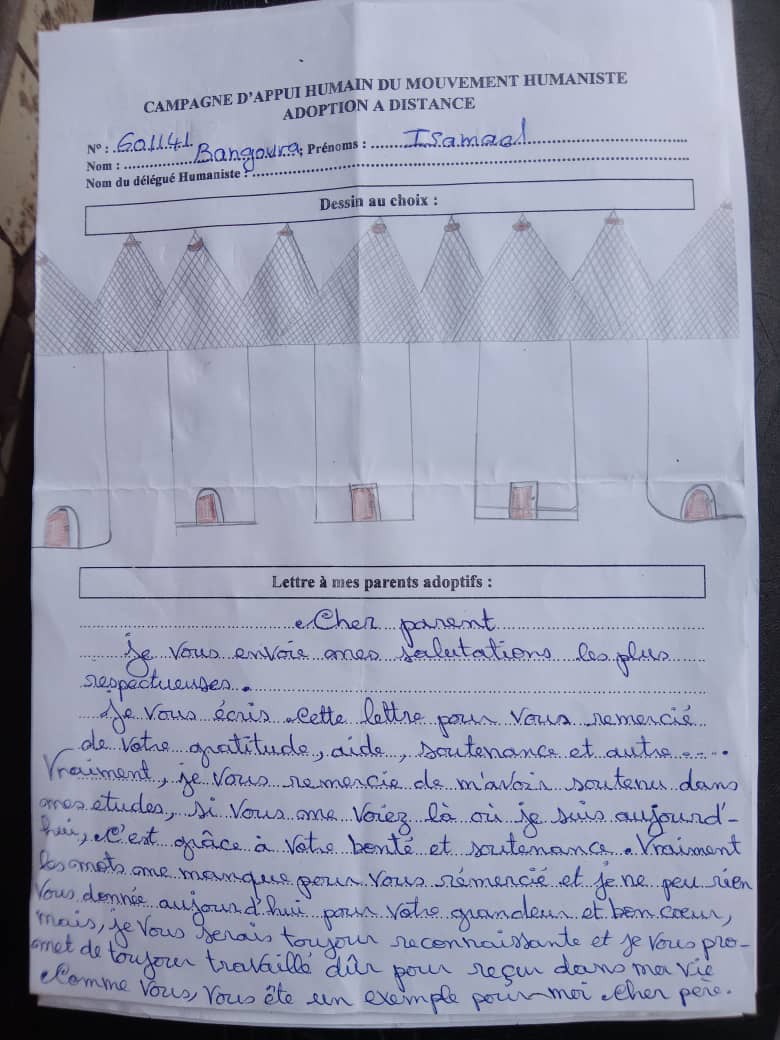 CAMPAGNE D'APPUI HUMAIN DU MOUVEMENT HUMANISTE
ADOPTION A DISTANCE
N° : 601141
Nom : Bangoura; Prénoms : Isamael
Nom du délégué Humaniste :
Dessin au choix :
Lettre à mes parents adoptifs :
Cher parent
je vous envoie mes salutations les plus
respectueuses.
Je vous écris cette lettre pour vous remercié
de votre gratitude, aide, soutenance et autre....
Vraiment, je vous remercie de m'avoir soutenu dans
mes études, si vous me voiez là où je suis aujourd'-
hui, c'est grâce à votre bonté et soutenance. Vraiment
les mots me manque pour vous rémercié et je ne peu rien
vous donnée aujourd'hui pour votre grandeur et bon cœur,
mais, je vous serais toujour reconnaissante et je vous pro-
met de toujour travaillé dûr pour reçur dans ma vie
comme vous, vous ête un exemple pour moi cher père.